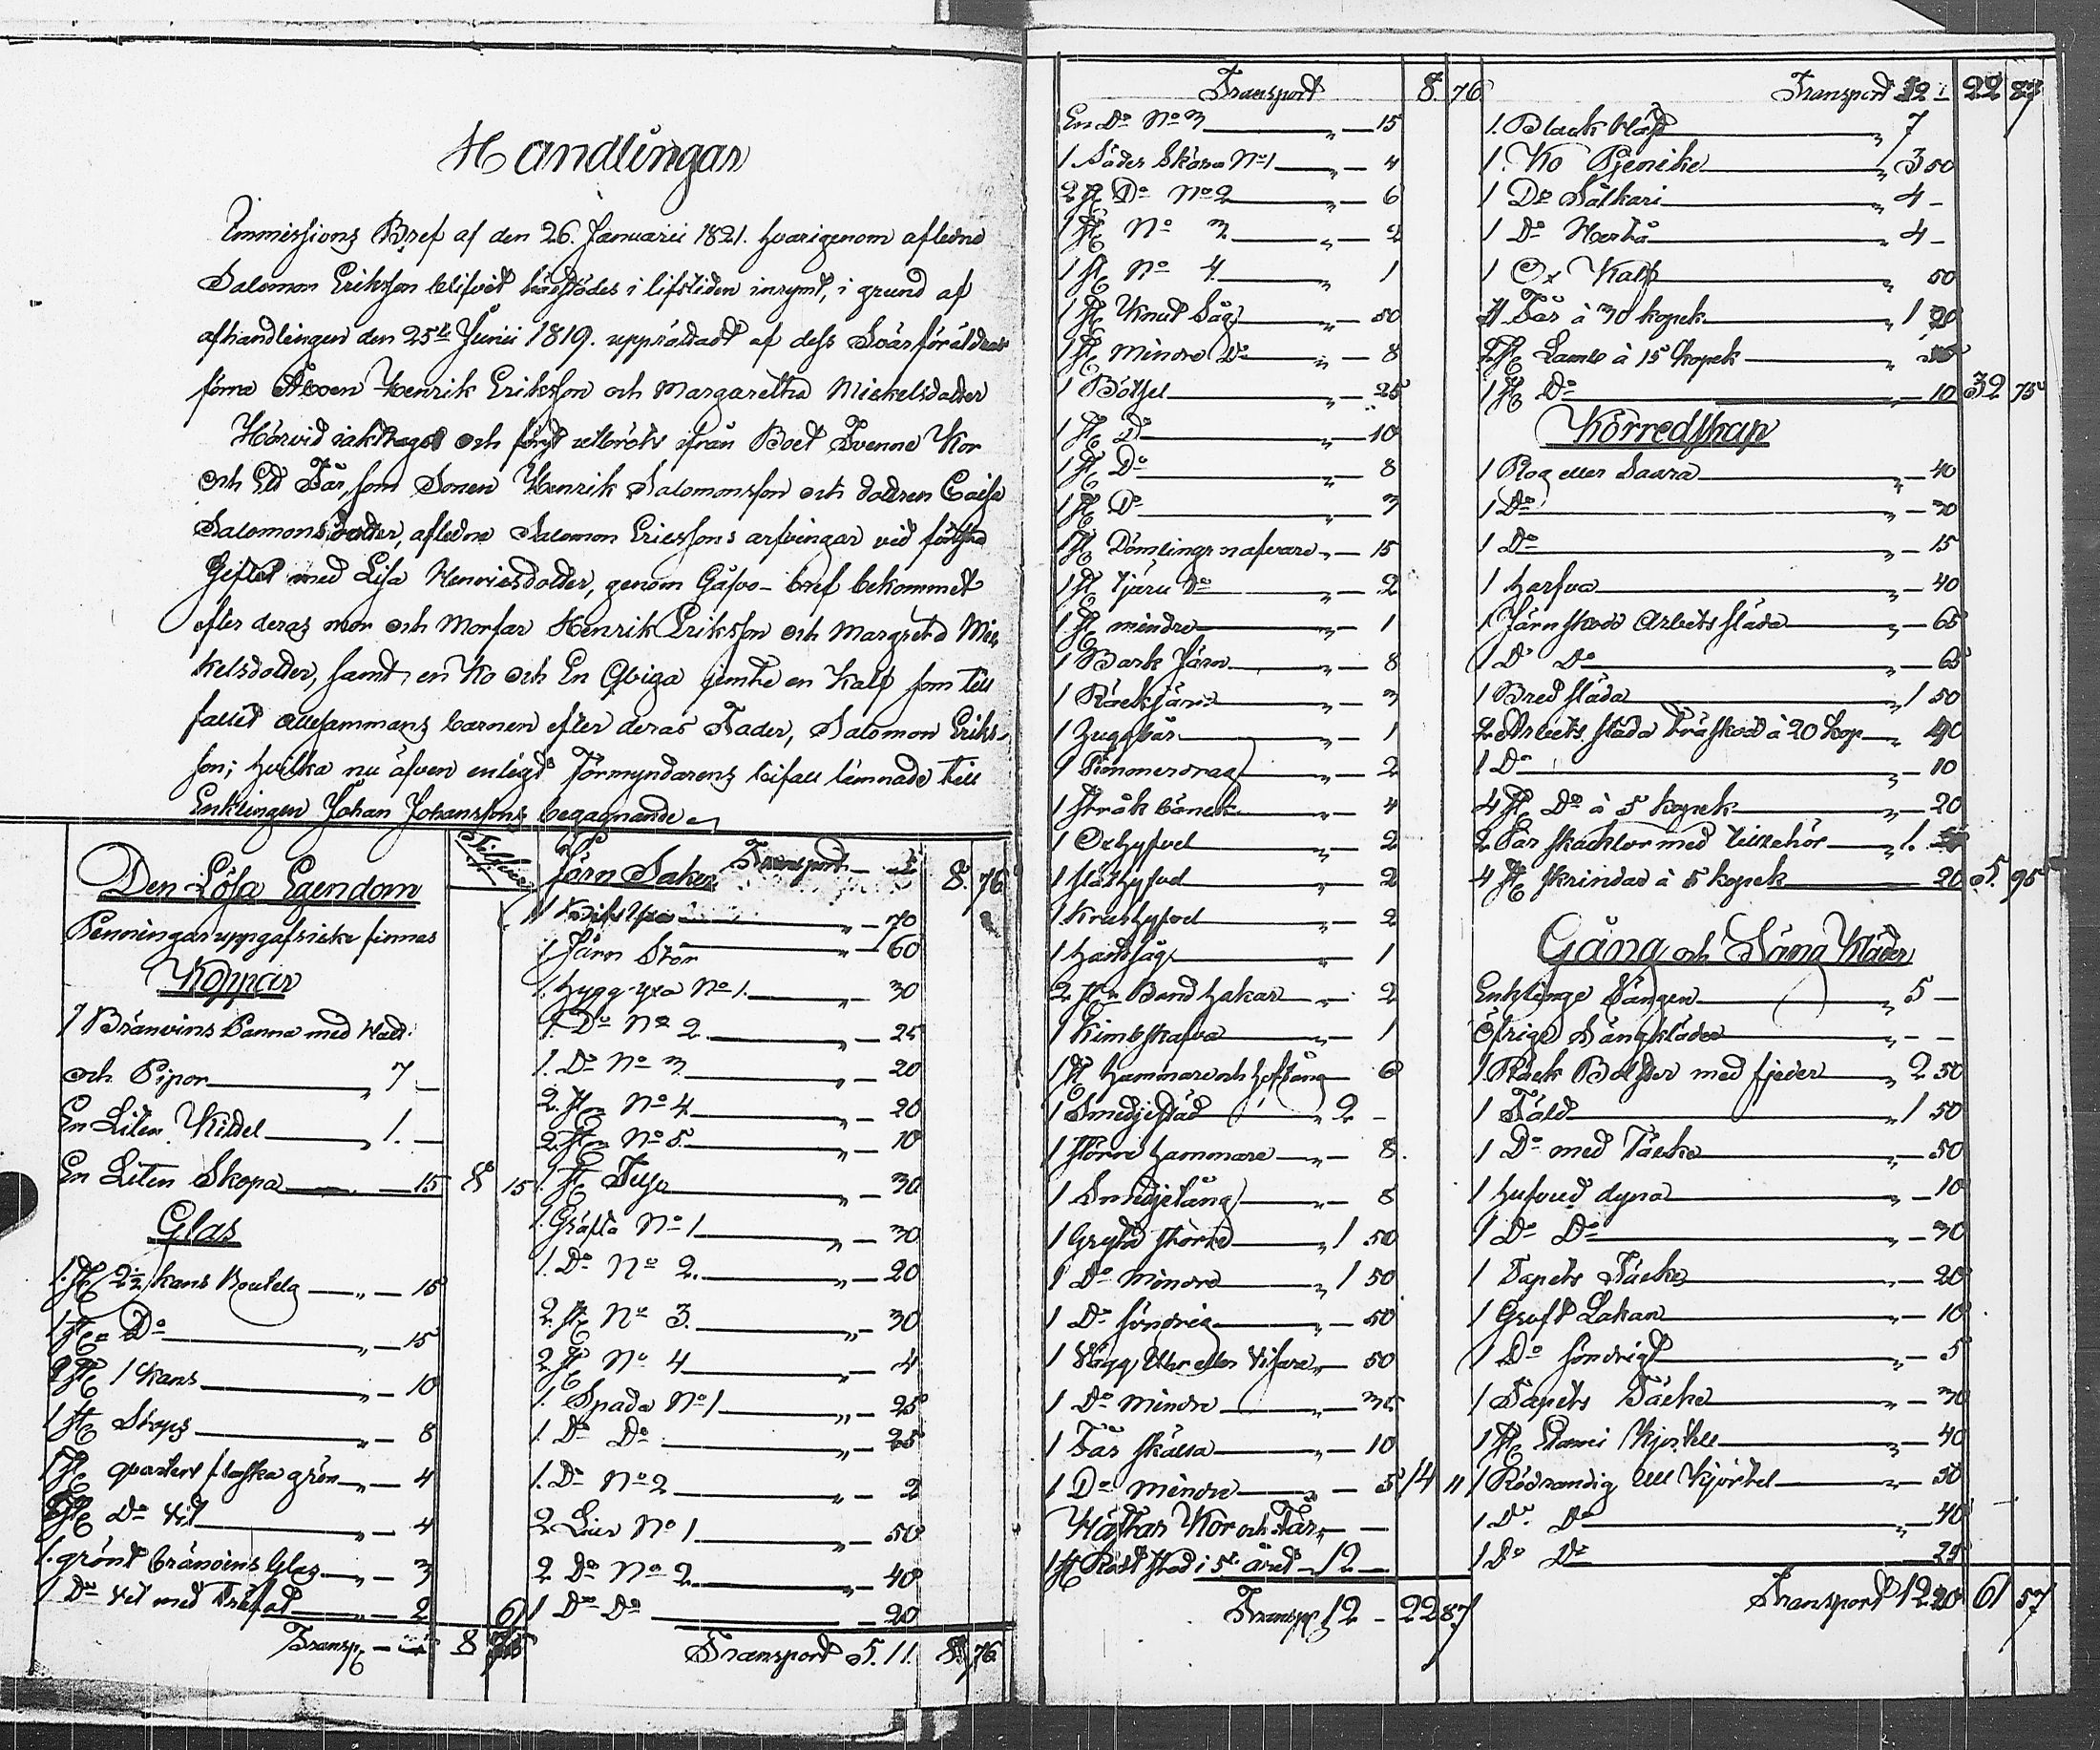 Handlingar
Immissions Bref af den 26. Januarii 1821. hvarigenom afledne
Salomon Eriksson blifvit besittjdes i lifstiden inrymt, i grund af
afhandlingen den 25te Junii 1819. upprättadt af dess Svärföräldrar
förra Åboen Henrik Eriksson och Margaretha Mickelsdotter
Härvid iakttages och först utbröts ifrån Boet Tvenne Kor
och Ett Får, som Sonen Henrik Salomonsson och dottren Caisa
Salomonsdotter, aflidne Salomon Ericssons arfvingar vid förtsta
Giftet med Lisa Henricsdotter, genom Gåfvo-bref bekommet
efter deras mor och Morfar Henrik Eriksson och Margreta Mic
kelsdotter, samt en Ko och En Qviga jemte en Kalf som till
fallit allesammans barnen efter deras Fader, Salomon Eriks-
son; hvilka nu äfven enligt Förmyndarens bifall lämnade till
Enklingen Johan Johanssons begagnande
Den Lösa Egendom
Penningar uppgafs icke finnas
Koppar
1 Bränvins Panna med Hatt
och Pipor 7 —
En Liten Kittel 1. —
En Liten Skopa — 15 8 15
Glas
1. st 2½ kans Boutelg „ — 15
1 st D:o „ — 15
2 st 1 kans „ — 10
1 st Stops „ — 8
1 st qvarters flaska grön „ — 4
1 st D:o vit „ — 4
1. grönt bränvins Glas „ — 3
1 D:o vit med Träfat „ — 2 61
Transp. 8 76
Järn Saker Transport 8. 76
1 yxa „ — 70
1 Järn Stör „ — 60
1. Hygg yxa No 1. „ — 30
1. D:o No 2. „ — 25
1. D:o No 3 „ — 20
2. st No 4. „ — 20
2. st No 5. „ — 10
1. st „ — 30
1. Gräfta No 1 „ — 30
1. D:o No 2. „ — 20
2. st No 3. „ — 30
2. st No 4 „ — 4
1. Spada No 1 „ — 25
1. D:o D:o „ — 25
1. D:o No 2 „ — 2
2 Liar No 1 „ — 50
2 D:o No 2. „ — 40
1 D:o D:o — 20
Transport 5. 11. 8. 76
Transport 8. 76
En D:o No 3 „ — 15
1 Säder Skära No 1 „ — 4
2 st D:o No 2 „ — 6
1 st No 3 „ — 2
1 st No 4. „ — 1
1 st Knut Såg „ — 50
1 st mindre D:o „ — 8
1 Böttsel „ — 25
1 st D:o „ — 10
1 st D:o „ — 8
1 st D:o „ — 3
1 st Dömlings nafvare „ — 15
1 st tjäru D:o „ — 2
1 st mindre „ — 1
1 Bark Järn „ — 8
1 Räckjärn „ — 3
1 „ — 1
1 Timmerdrag „ — 2
1 stråk bänck „ — 4
1 Oxhyfvel „ — 2
1 släthyfvel „ — 2
1. Krushyfvel „ — 2
1 Handsåg „ — 1
2 st Band hakar „ — 2
1 Kimbskafva „ — 1
1 st hammare och hoftång — 6
1 Smedjestäd „ 2 —
1 större hammare „ — 8.
1 Smedjetång „ — 8
1 Gryta större „ 1 50
1 D:o Mindre „ 1 50
1 D:o söndrig „ — 50
1 Vägg Uhr eller Visare „ — 50
1 D:o mindre „ — 35
1 Får skälla „ — 10
1 D:o mindre „ — 5 14 11
Hästar Kor och Får „ —
1 st Röd stod i 5te året — 12 —
Transp 12 — 22 87
Transport 12 — 22 87
1. Black häst „ 7
1. Ko Pjenike „ 3 50
1 D:o Sälkari „ 4 —
1 D:o Hertå „ 4 —
1 Ox Kalf 50
4 Får à 30 kopek „ 1 20
st Lamb à 15 Kopek „
1 st D:o — 10 32 75
Körredskap
1 Plog eller Saara „ — 40
1 D:o „ — 30
1 D:o „ — 15
1 harfva „ — 40
1 Järnskodd Arbets släda „ — 65
1 D:o D:o „ — 65
1 Bred släda „ 1 50
2 Arbets släda träskod à 20 kop „ 40
1 D:o „ — 10
4 st D:o à 5 kopek „ — 20
2 Par skacklor med tillehör „ 1.
4 st skrindor à 5 kopek 20 5. 95
Gång och Säng Kläder
Enklinge Sängen „ 5 —
Öfrige Sängkläder „ — —
1 Räck Bolster med fjeder „ 2 50
1 Fäld „ 1 50
1 D:o med Täcke „ — 50
1 hufvud dyna „ — 10
1 D:o D:o „ — 30
1 Tapets Täcke „ — 20
1 Groft Lakan „ — 10
1 D:o söndrigt „ — 5
1 Tapets Täcke „ — 30
1 st Kjortel „ — 40
1 Rödrandig Ull Kjortel „ — 50
1 D:o D:o „ — 40
1 D:o D:o — 25
Transport 12 20 61 57